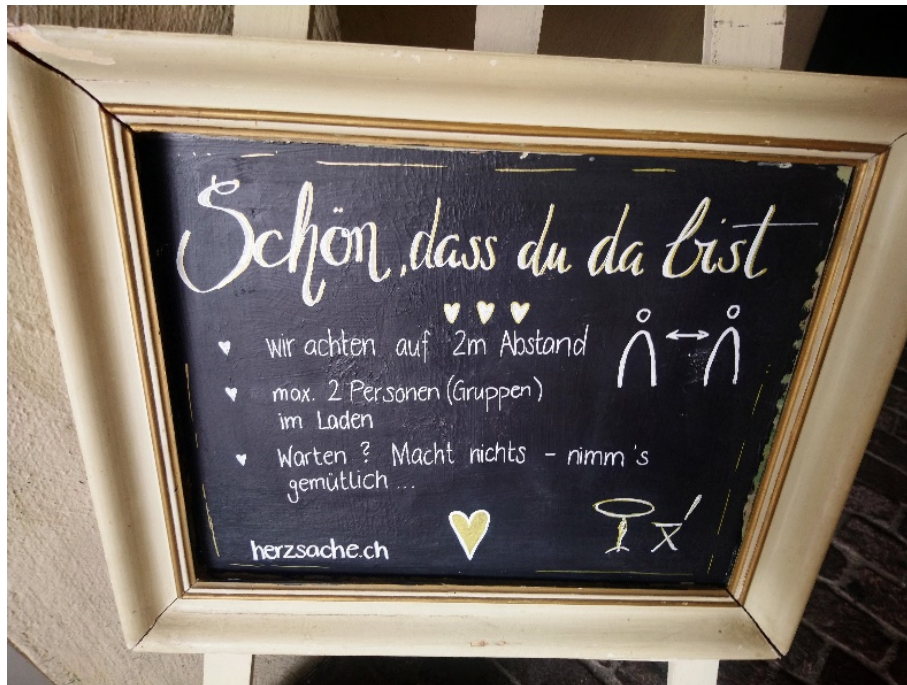 Schön, dass du da bist
wir achten auf 2m Abstand
max. 2 Personen (Gruppen)
im Laden
Warten? Macht nichts - nimm's
gemütlich...
herzsache.ch